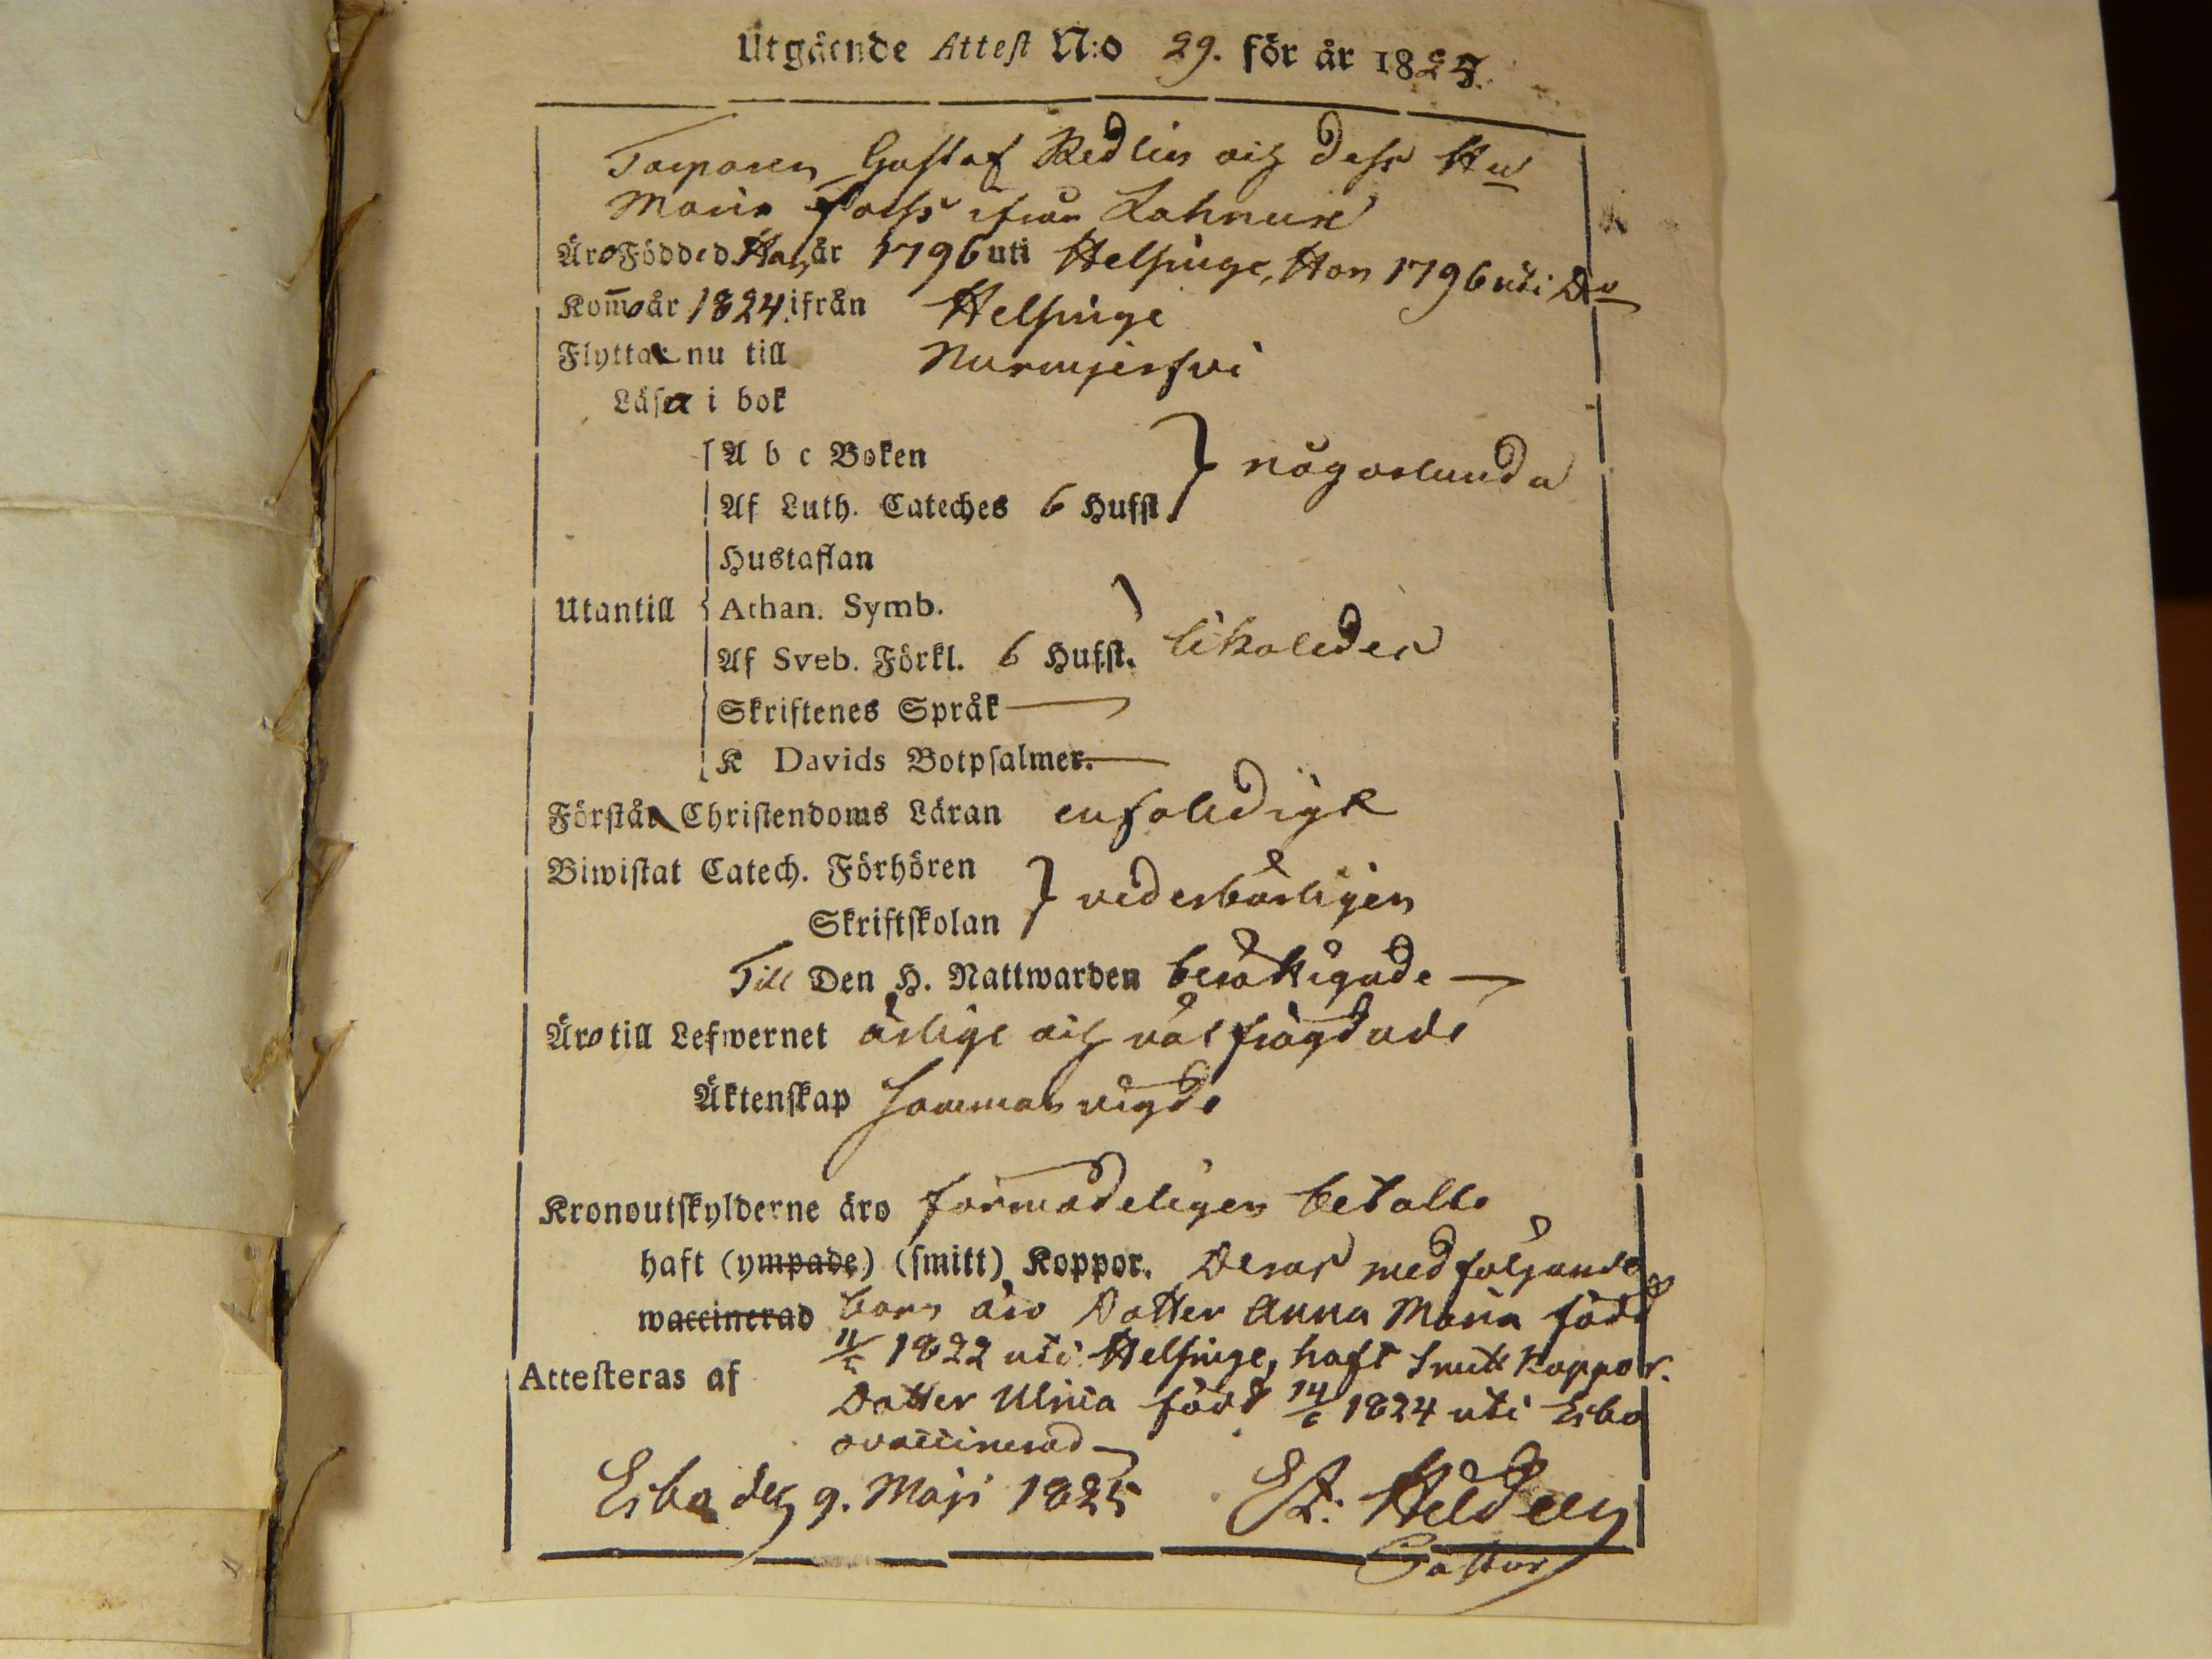 Utgående Attest N:o 29. för år 1825.
Torparen Gustaf Redlin och dess Hu
Maria ifrån Lahnus
Äro Födde d. Han år 1796 uti Helsinge, Hon 1796 uti Do
Kom̄o år 1824 ifrån Helsinge
Flytta nu till Nurmijersvi
Läsa i bok
A b c Boken
Af Luth. Cateches 6 Hufst. } någorlunda
Hustaflan
Utantill Athan. Symb.
Af Sveb. Förkl. 6 Hufst. likaledes
Skriftenes Språk
K Davids Botpsalmer.
Förstå Christendoms Läran enfaldigt
Biwistat Catech. Förhören
Skriftskolan } vederbörligen
Till Den H. Nattwarden berättigade
Äro till Lefwernet ärlige och välfrägdade
Äktenskap sammanvigde
Kronoutskylderne äro förmodeligen betalte
haft (ympade) (smitt) Koppor. Deras medföljande
waccinerad barn äro Dotter Anna Maria född
11/5 1822 uti Helsinge, haft smitt koppor.
Attesteras af
Dotter Ulrica född 14/6 1824 uti Esbo
ovaccinerad
Esbo den 9. Maji 1825 Heldén
Pastor